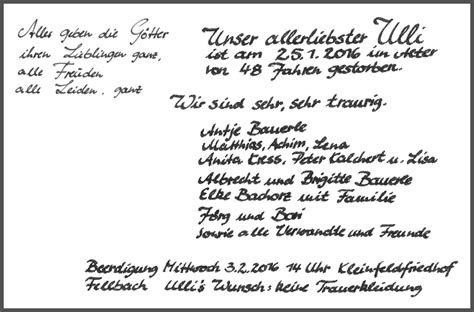 Alles geben die Götter
ihren Lieblingen ganz,
alle Freuden
alle Leiden, ganz
Unser allerliebster Ulli
ist am 25.1.2016 im Alter
von 48 Jahren gestorben.
Wir sind sehr, sehr traurig.
Antje Bauerle
Matthias, Achim, Lena
Anita Kress, Peter Kalchert u. Lisa
Albrecht und Brigitte Bauerle
Elke Bachorz mit Familie
Jörg und Bari
sowie alle Verwandte und Freunde
Beerdigung Mittwoch 3.2.2016 14 Uhr Kleinfeldfriedhof
Fellbach Ulli's Wunsch: keine Trauerkleidung